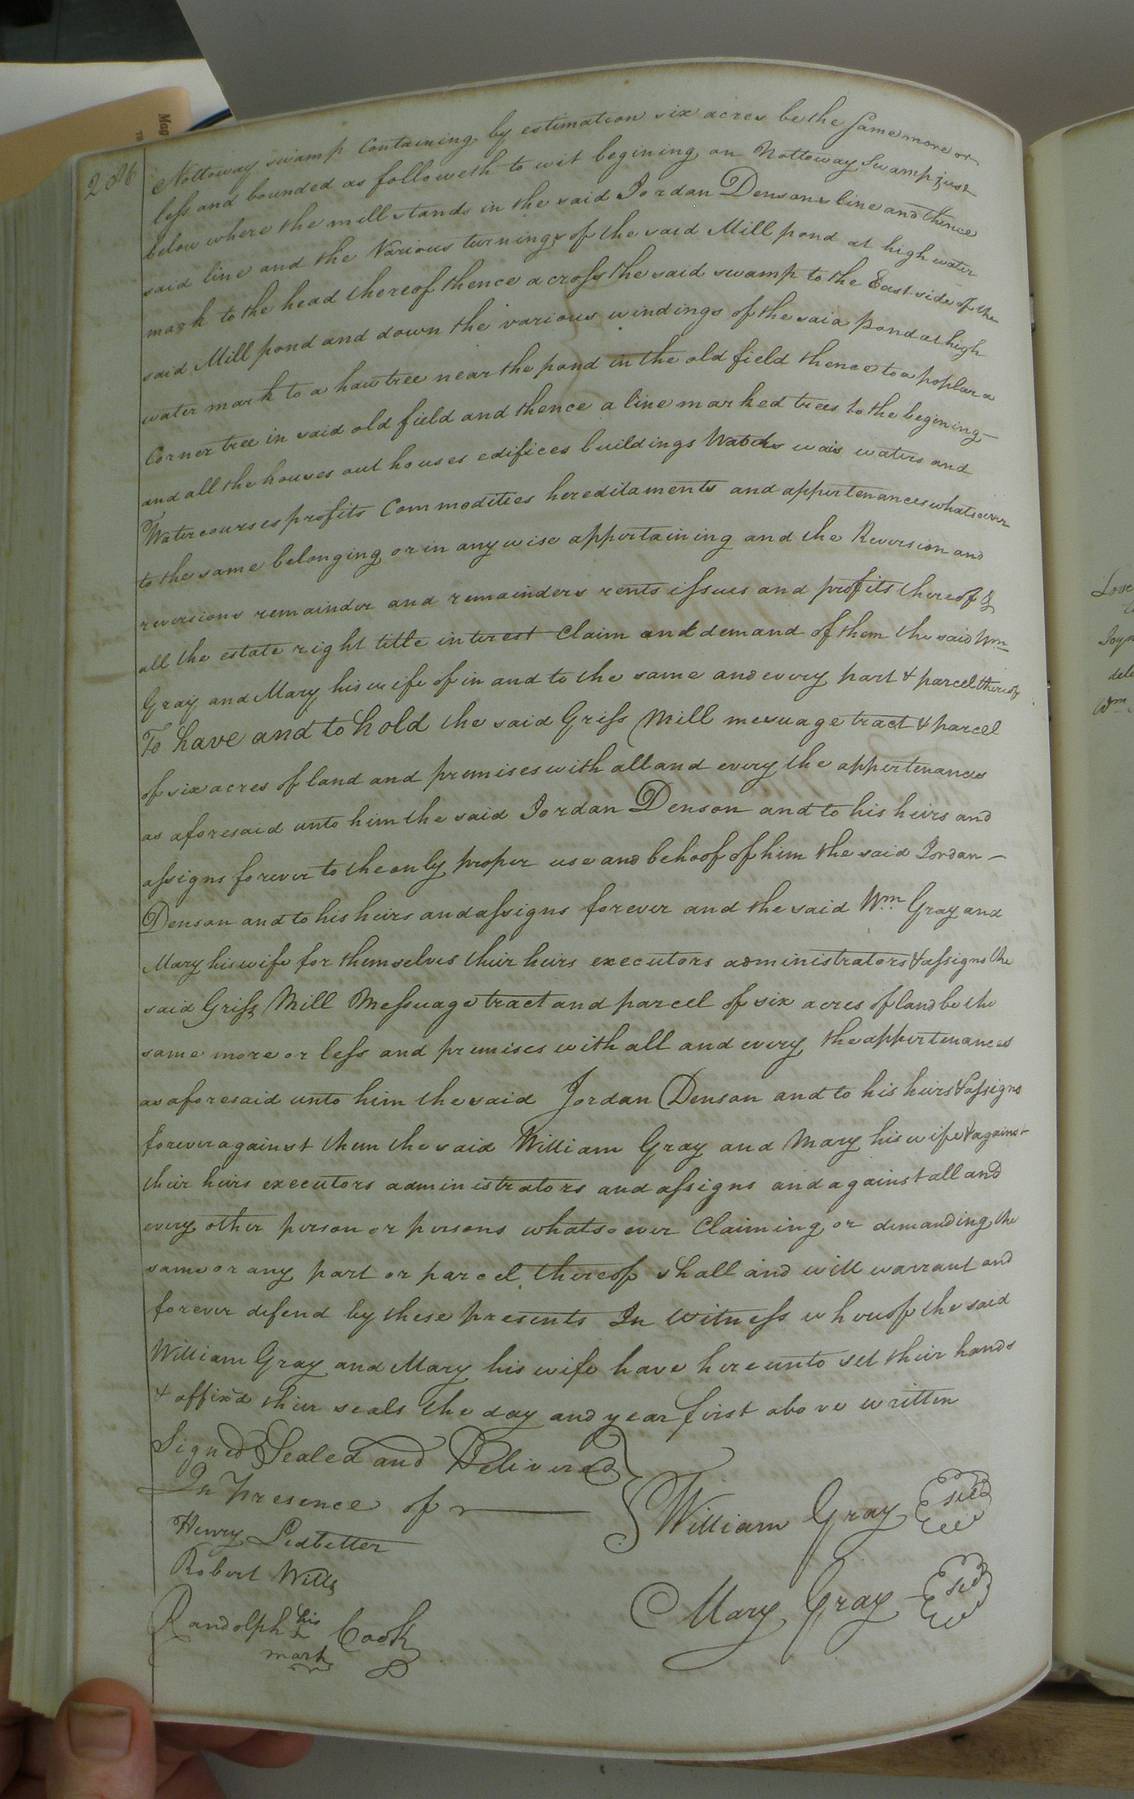 Nottoway swamp Containing by estimation six acres be the same more or
less and bounded as followeth to wit begining on Nottoway Swamp just
below where the mill stands in the said Jordan Densons line and thence
said line and the Various turnings of the said Mill pond at high water
mark to the head thereof thence across the said swamp to the East side of the
said Mill pond and down the various windings of the said pond at high
water mark to a haw tree near the pond in the old field thence to a poplar a
Corner tree in said old field and thence a line marked trees to the begining
and all the houses out houses edifices buildings ways waters and
Watercourses profits Commodities hereditaments and appertenances whatsoever
to the same belonging or in any wise appertaining and the Reversion and
reversions remainder and remainders rents issues and profits thereof &
all the estate right title interest Claim and demand of them the said Wm
Gray and Mary his wife of in and to the same and every part & parcel thereof
To have and to hold the said Griss Mill mesuage tract & parcel
of six acres of land and premises with all and every the appertenances
as aforesaid unto him the said Jordan Denson and to his heirs and
assigns forever to the only proper use and behoof of him the said Jordan
Denson and to his heirs and assigns forever and the said Wm Gray and
Mary his wife for themselves their heirs executors administrators & assigns the
said Griss Mill Messuage tract and parcel of six acres of land be the
same more or less and premises with all and every the appertenances
as aforesaid unto him the said Jordan Denson and to his heirs & assigns
forever against them the said William Gray and Mary his wife & against
their heirs executors administrators and assigns and against all and
every other person or persons whatsoever Claiming or demanding the
same or any part or parcel thereof shall and will warrant and
forever defend by these presents In witness whereof the said
William Gray and Mary his wife have hereunto set their hands
& affix'd their seals the day and year first above written
Signed Sealed and Delivered
In Presence of
William Gray seal
Henry Ledbetter
Robert Wills
Mary Gray seal
Randolph his Cook
mark